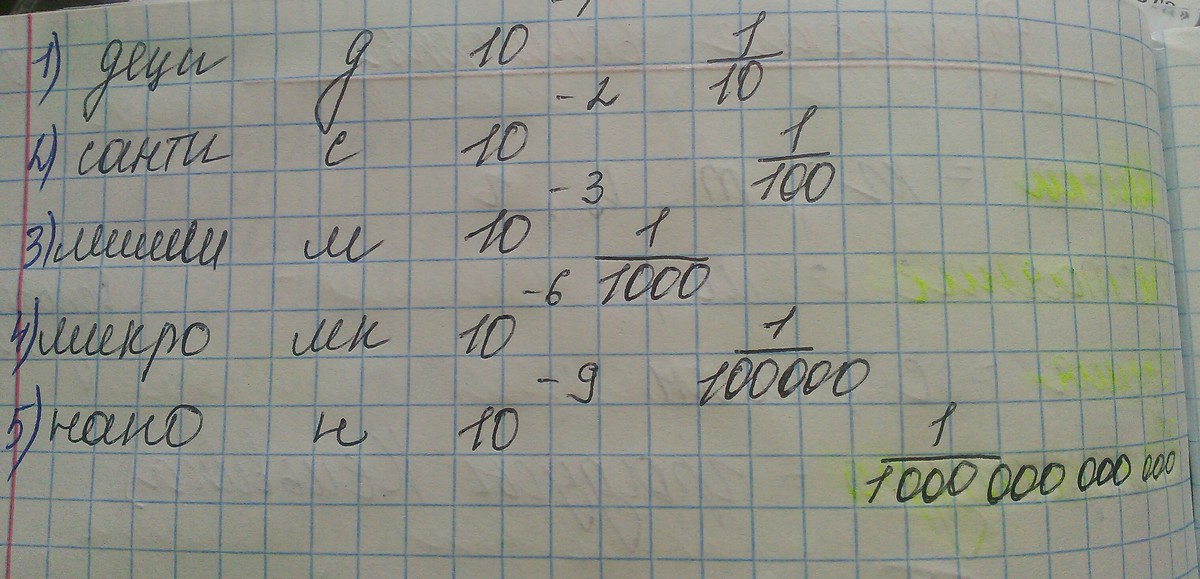 1) деци д 10 1/10
2) санти с 10⁻² 1/100
3) милли м 10⁻³ 1/1000
4) микро мк 10⁻⁶ 1/100000
5) нано н 10⁻⁹ 1/1000 000 000 000